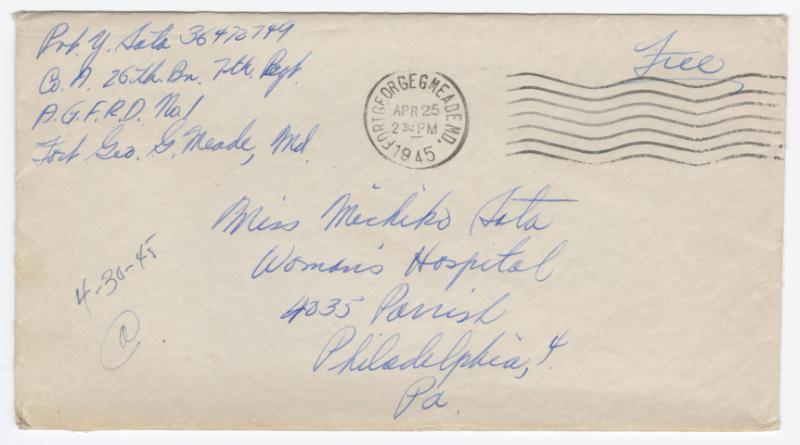 Pvt. Y. Sata 36470749
Co. A. 26th. Bn. 7th. Regt.
A.G.F.R.D. No. 1
Fort Geo. G. Meade, Md.
Free
FORT GEORGE G MEADE MD.
APR 25
2 30 PM
1945
Miss Michiko Sata
Woman's Hospital
4035 Parrish
Philadelphia, 4.
Pa.
4-30-45
a